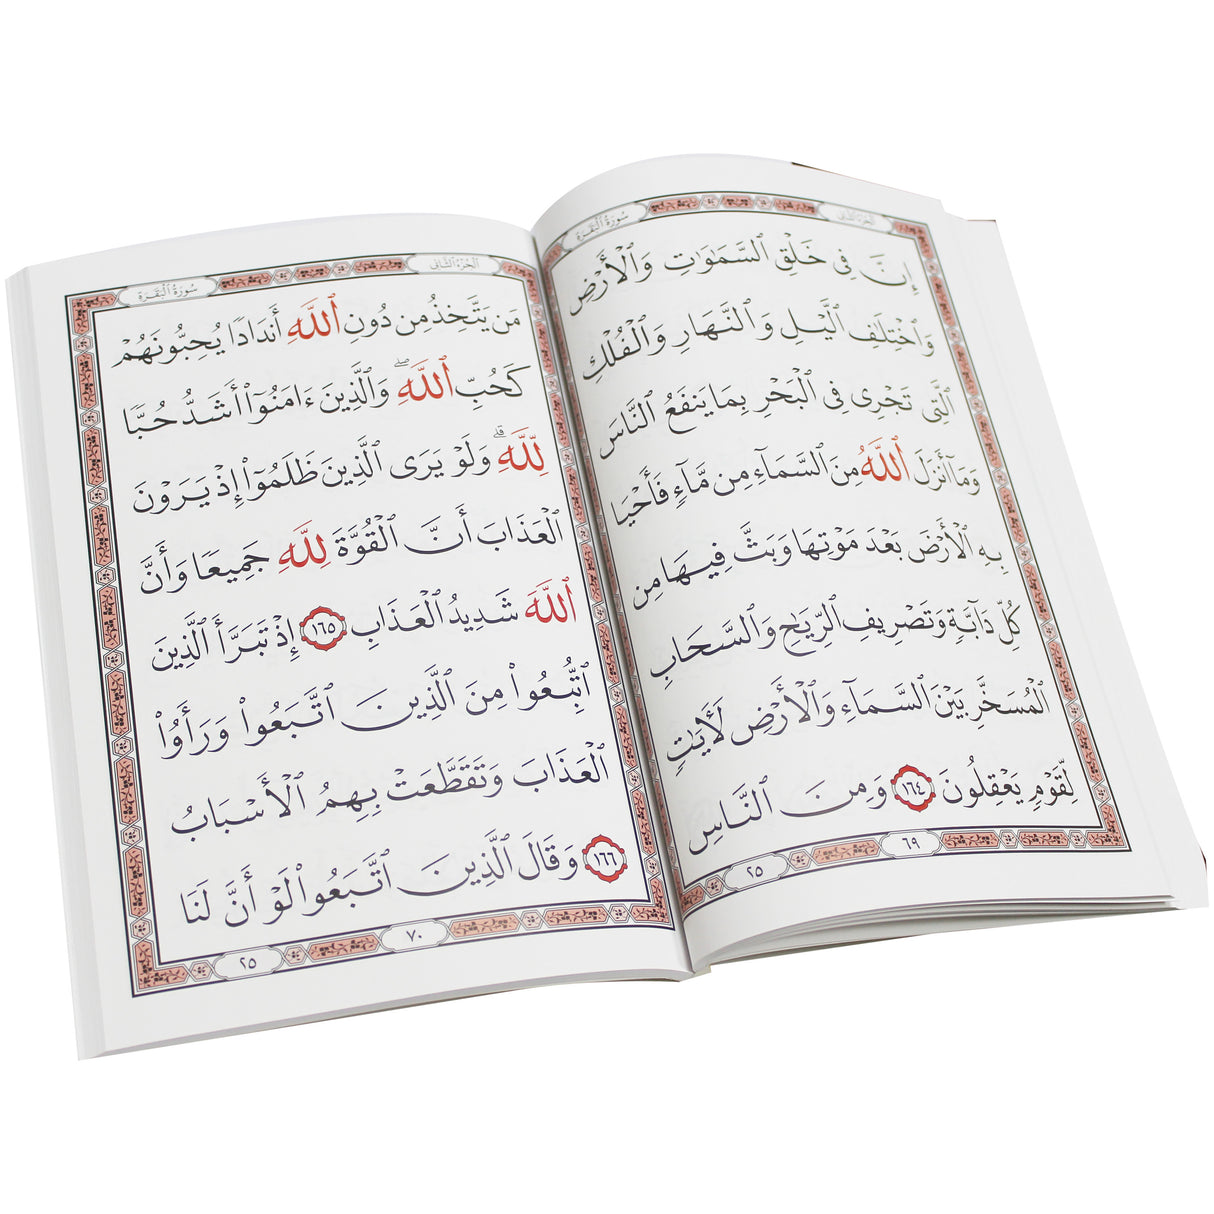 سُورَةُ ٱلْبَقَرَةِ
ٱلْجُزْءُ ٱلثَّانِي
إِنَّ فِى خَلْقِ ٱلسَّمَٰوَٰتِ وَٱلْأَرْضِ
وَٱخْتِلَٰفِ ٱلَّيْلِ وَٱلنَّهَارِ وَٱلْفُلْكِ
ٱلَّتِى تَجْرِى فِى ٱلْبَحْرِ بِمَا يَنفَعُ ٱلنَّاسَ
وَمَآ أَنزَلَ ٱللَّهُ مِنَ ٱلسَّمَآءِ مِن مَّآءٍ فَأَحْيَا
بِهِ ٱلْأَرْضَ بَعْدَ مَوْتِهَا وَبَثَّ فِيهَا مِن
كُلِّ دَآبَّةٍ وَتَصْرِيفِ ٱلرِّيَٰحِ وَٱلسَّحَابِ
ٱلْمُسَخَّرِ بَيْنَ ٱلسَّمَآءِ وَٱلْأَرْضِ لَءَايَٰتٍ
لِّقَوْمٍ يَعْقِلُونَ ١٦٤ وَمِنَ ٱلنَّاسِ
٦٩
٢٥
ٱلْجُزْءُ ٱلثَّانِي
سُورَةُ ٱلْبَقَرَةِ
مَن يَتَّخِذُ مِن دُونِ ٱللَّهِ أَندَادًا يُحِبُّونَهُمْ
كَحُبِّ ٱللَّهِ ۖ وَٱلَّذِينَ ءَامَنُوٓا۟ أَشَدُّ حُبًّا
لِّلَّهِ ۗ وَلَوْ يَرَى ٱلَّذِينَ ظَلَمُوٓا۟ إِذْ يَرَوْنَ
ٱلْعَذَابَ أَنَّ ٱلْقُوَّةَ لِلَّهِ جَمِيعًا وَأَنَّ
ٱللَّهَ شَدِيدُ ٱلْعَذَابِ ١٦٥ إِذْ تَبَرَّأَ ٱلَّذِينَ
ٱتُّبِعُوا۟ مِنَ ٱلَّذِينَ ٱتَّبَعُوا۟ وَرَأَوُا۟
ٱلْعَذَابَ وَتَقَطَّعَتْ بِهِمُ ٱلْأَسْبَابُ
١٦٦ وَقَالَ ٱلَّذِينَ ٱتَّبَعُوا۟ لَوْ أَنَّ لَنَا
٧٠
٢٥